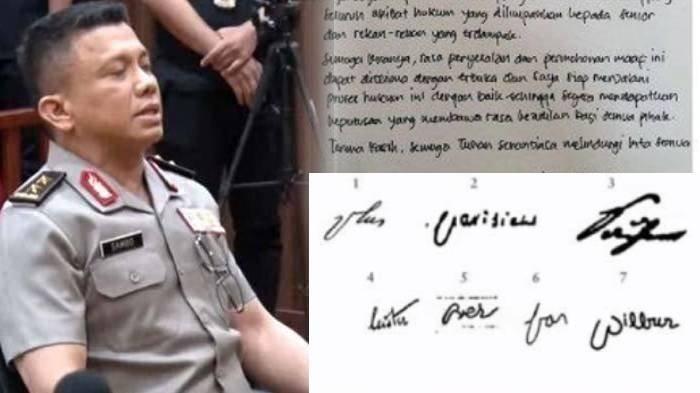 seluruh akibat hukum yang dilimpahkan kepada senior
dan rekan-rekan yang terdampak.
Semoga kiranya, rasa penyesalan dan permohonan maaf ini
dapat diterima dengan terbuka dan saya siap menjalani
proses hukum ini dengan baik sehingga segera mendapatkan
keputusan yang membawa rasa keadilan bagi semua pihak.
Terima kasih, semoga Tuhan senantiasa melindungi kita semua
SAMBO
1 2 3
4 5 6 7
for Wilbur